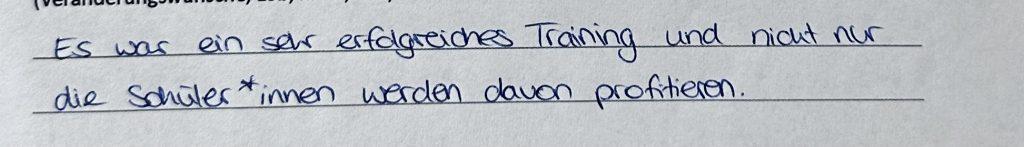 Es war ein sehr erfolgreiches Training und nicht nur
die Schüler*innen werden davon profitieren.